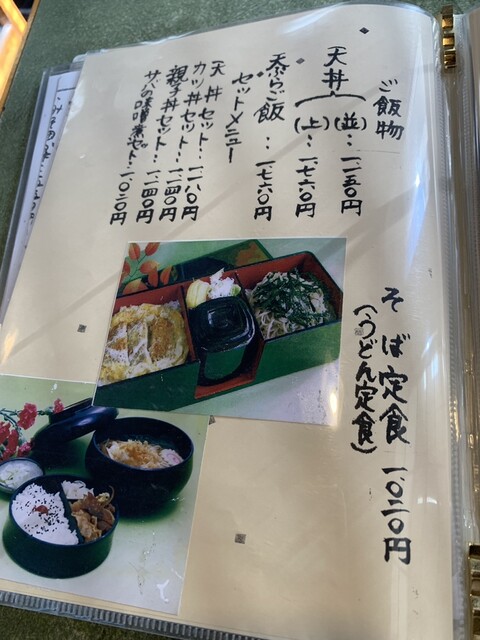 ご飯物
天丼 (並)…一、一五〇円
(上)…一、七六〇円
天ぷらご飯…一、七六〇円
セットメニュー
天丼セット…一、一八〇円
カツ丼セット…一、二四〇円
親子丼セット…一、二四〇円
サバの味噌煮セット…一、〇二〇円
そば定食 一、〇二〇円
(うどん定食)